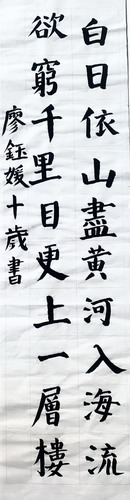 白日依山盡黃河入海流
欲窮千里目更上一層樓
廖鈺媛十歲書